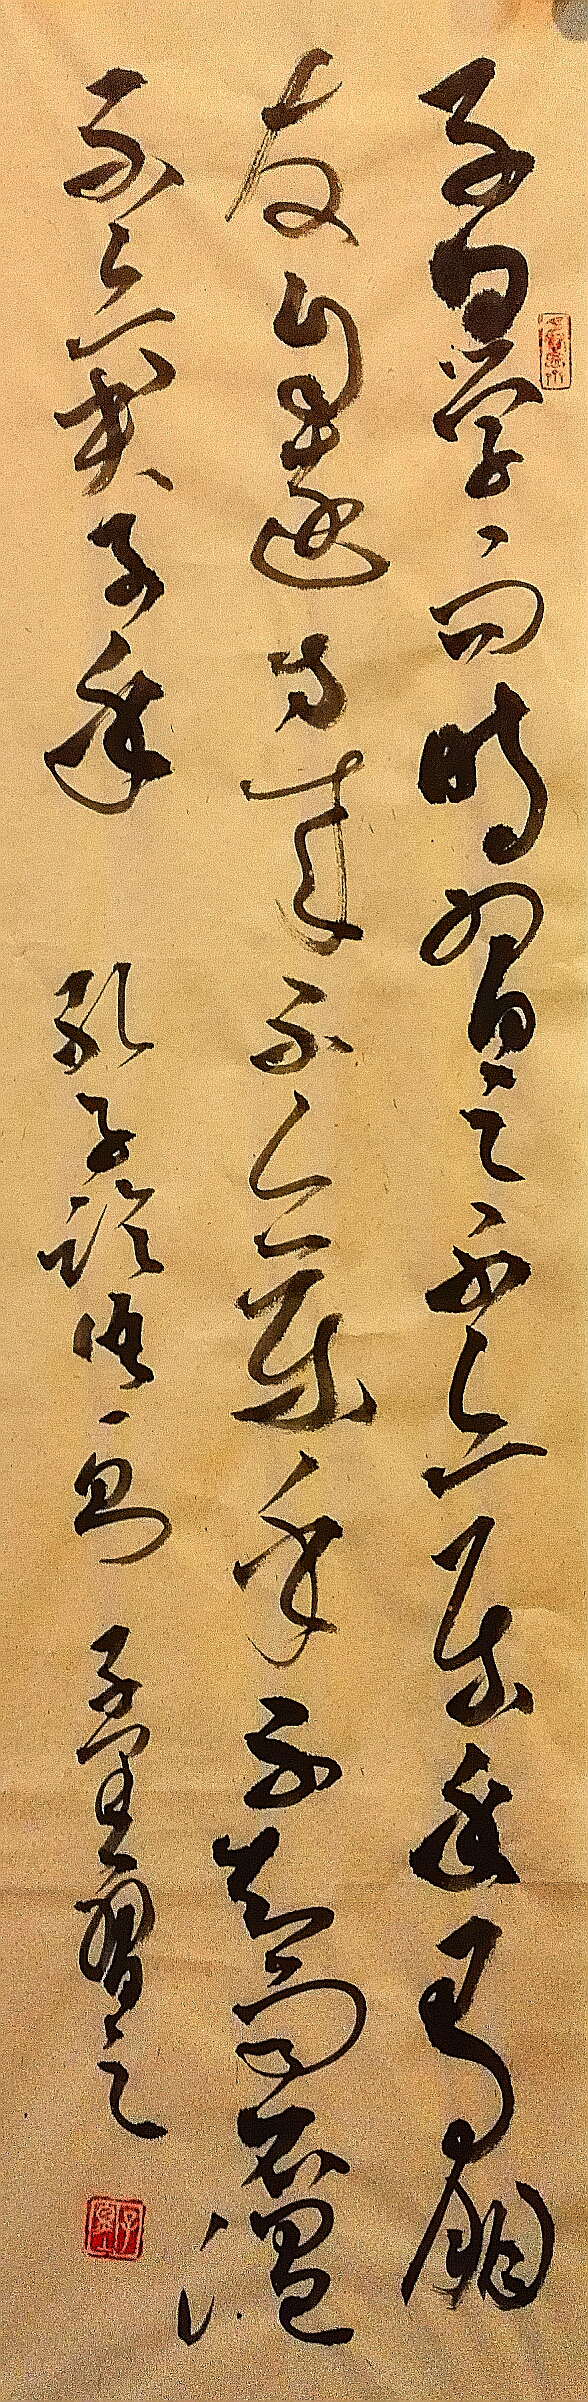 子曰学而時習之不亦悦乎有朋
友自遠方来不亦樂乎不知而不愠
不亦君子乎 孔子論語一句 子習之